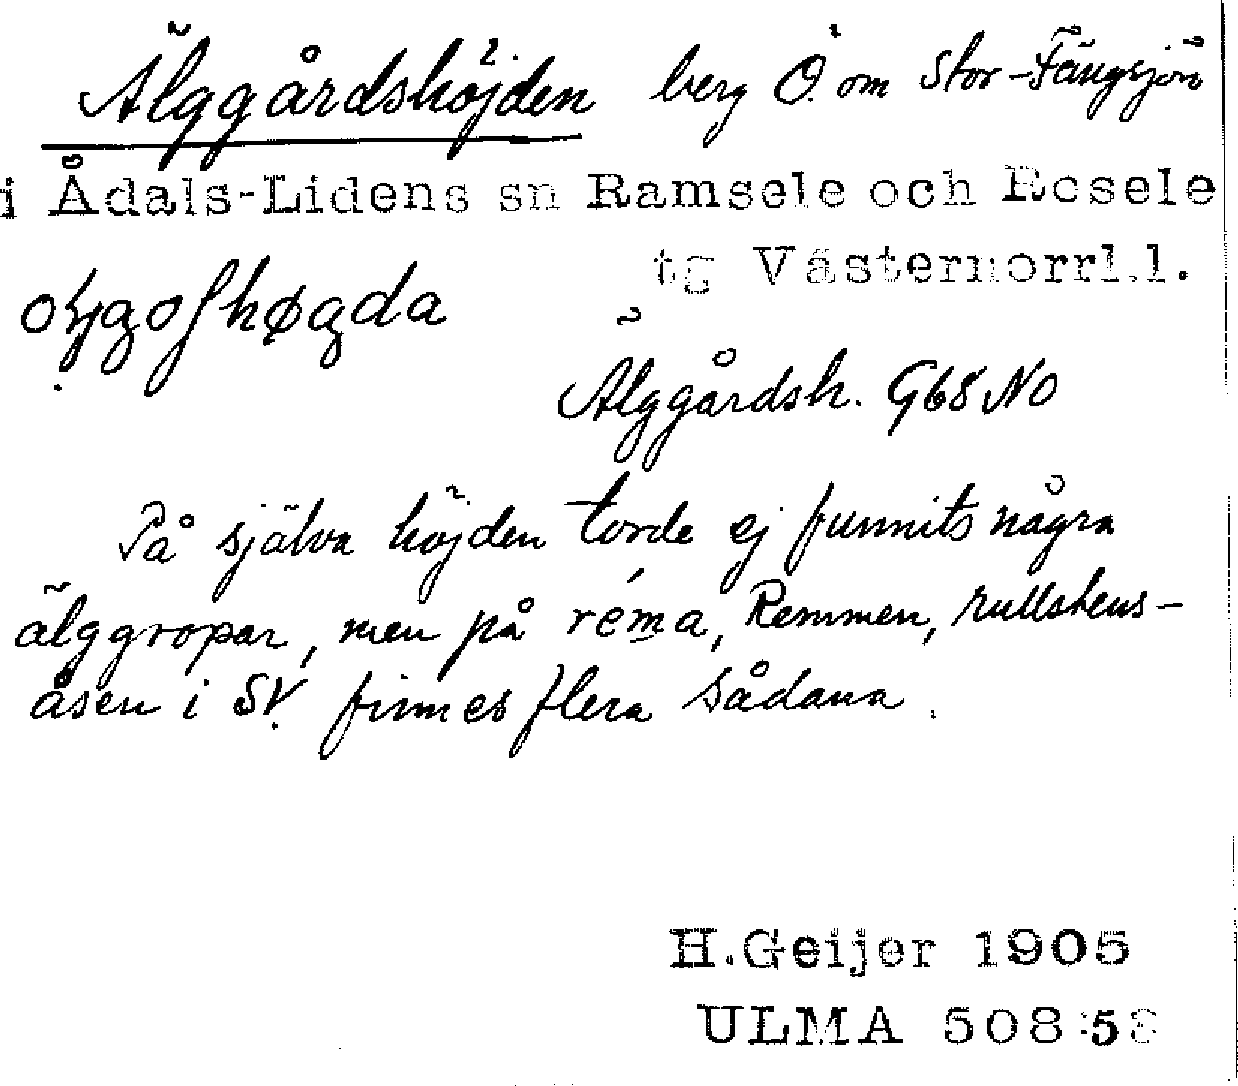 Älggårdshöjden berg Ö. om Stor-Tängsjön
i Ådals-Lidens sn Ramsele och Resele
tg Västernorrl.l.
Älggårdsh. G68 NO
På själva höjden torde ej funnits några
älggropar, men på réma, Remmen, rullstens-
åsen i SV. finnes flera sådana.
H.Geijer 1905
ULMA 508:58